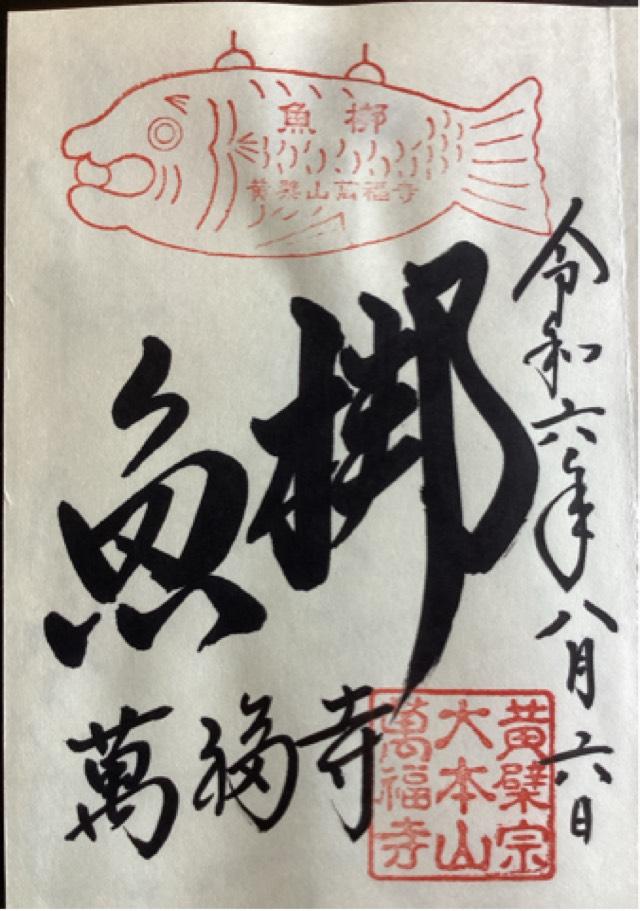 魚梆
黄檗山萬福寺
令和六年八月六日
魚梆
萬福寺
黄檗宗
大本山
萬福寺